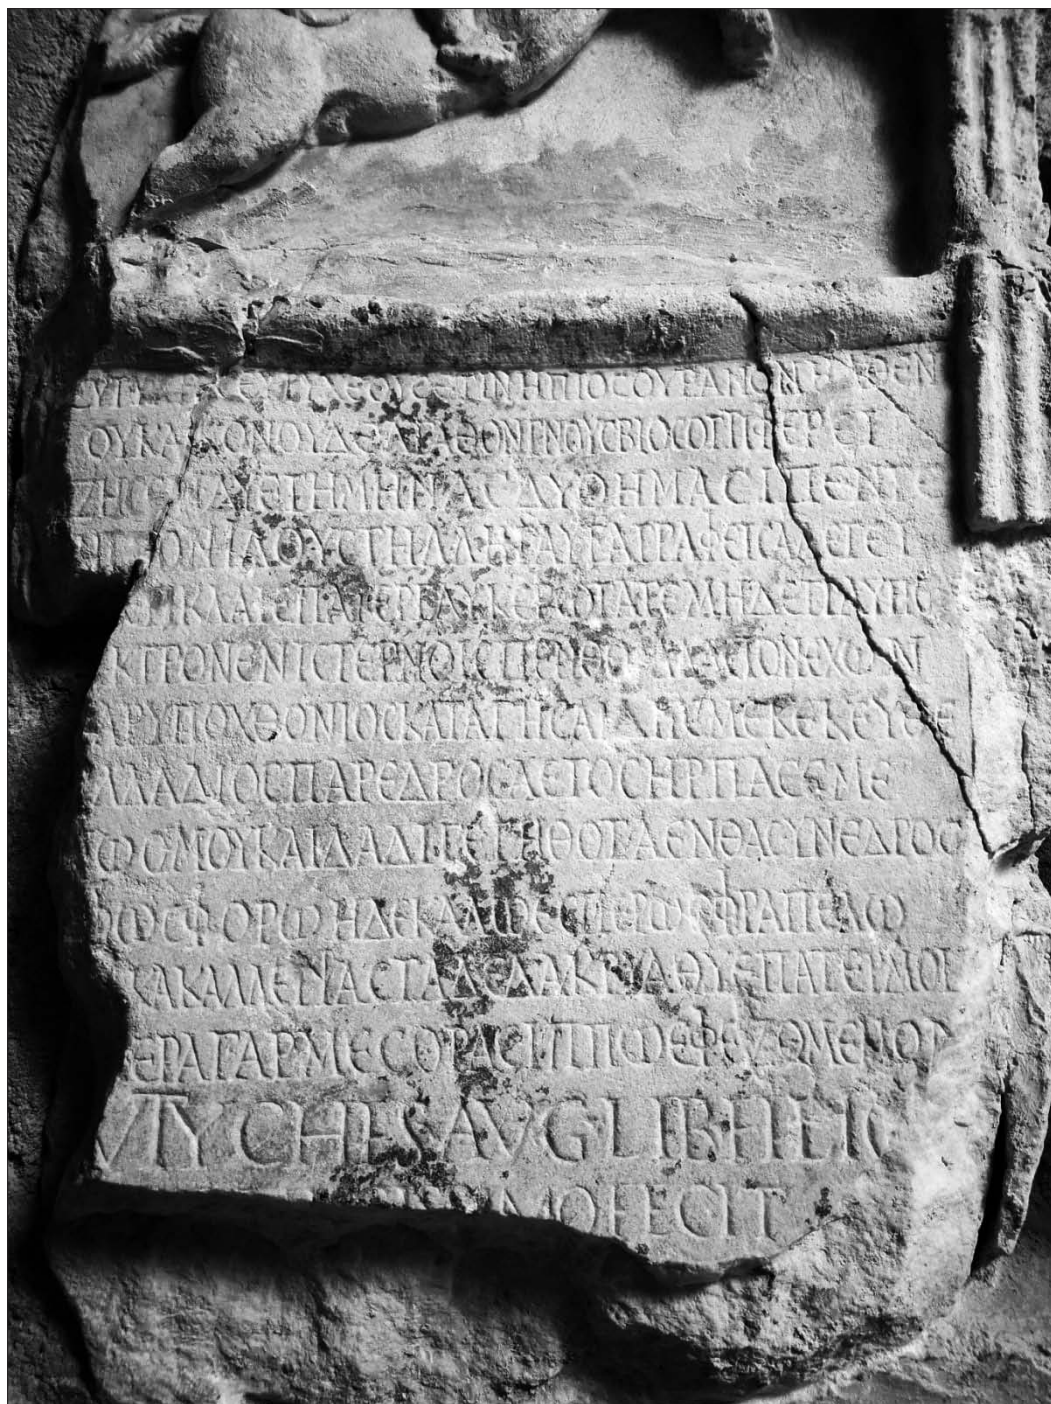 ΕϹΤΙΝΗΠΙΟϹΟΥΡΑΝΟΝΗΛΘΕΝ
ΟΥΚΑΚΟΝΟΥΔΕΑΓΑΘΟΝΓΝΟΥϹΒΙΟϹΟΤΙΦΕΡΕΙ
ΖΗϹΕΝΔΥΕΤΗΜΗΝΑϹΔΥΘΗΜΑϹΙΠΕΝΤΕ
ΟΝΙΔΟΥϹΤΗΛΛΗΝΤΑΥΤΑΓΡΑΦΕΙϹΑΛΕΓΕΙ
ΜΗΚΛΑΙΕΠΑΤΕΡΓΛΥΚΕΡΩΤΑΤΕΜΗΔΕΤΙΛΥΠΗϹ
ΚΤΡΟΝΕΝΙϹΤΕΡΝΟΙϹΠΕΝΘΟϹ ΕΧΩΝ
ΑΡΥΠΟΧΘΟΝΙΟϹΚΑΤΑΓΗϹΑΙΔΗϹΜΕΚΕΚΕΥΘΕ
ΑΛΛΑΔΙΟϹΠΑΡΕΔΡΟϹΑΕΤΟϹΗΡΠΑϹΕΜΕ
ΩϹΜΟΥΚΑΙΔΑΔΙΓΕΓΗΘΟΤΑΕΝΘΑϹΥΝΕΔΡΟϹ
ΩϹΦΟΡΩΗΔΕΚΑΛΩΕϹΠΕΡΩ
ΚΑΚΑΜΜΕΝΑϹΤΑΔΕΔΑΚΡΥΑΘΥΕΠΑΤΕΡΜΟΙ
ΕΡΑΓΑΡΜΕϹΟΡΑϹΙΠΠΩΕΦΕΖΟΜΕΝΟΝ
VTYCHESAVGLIB
MOFECIT